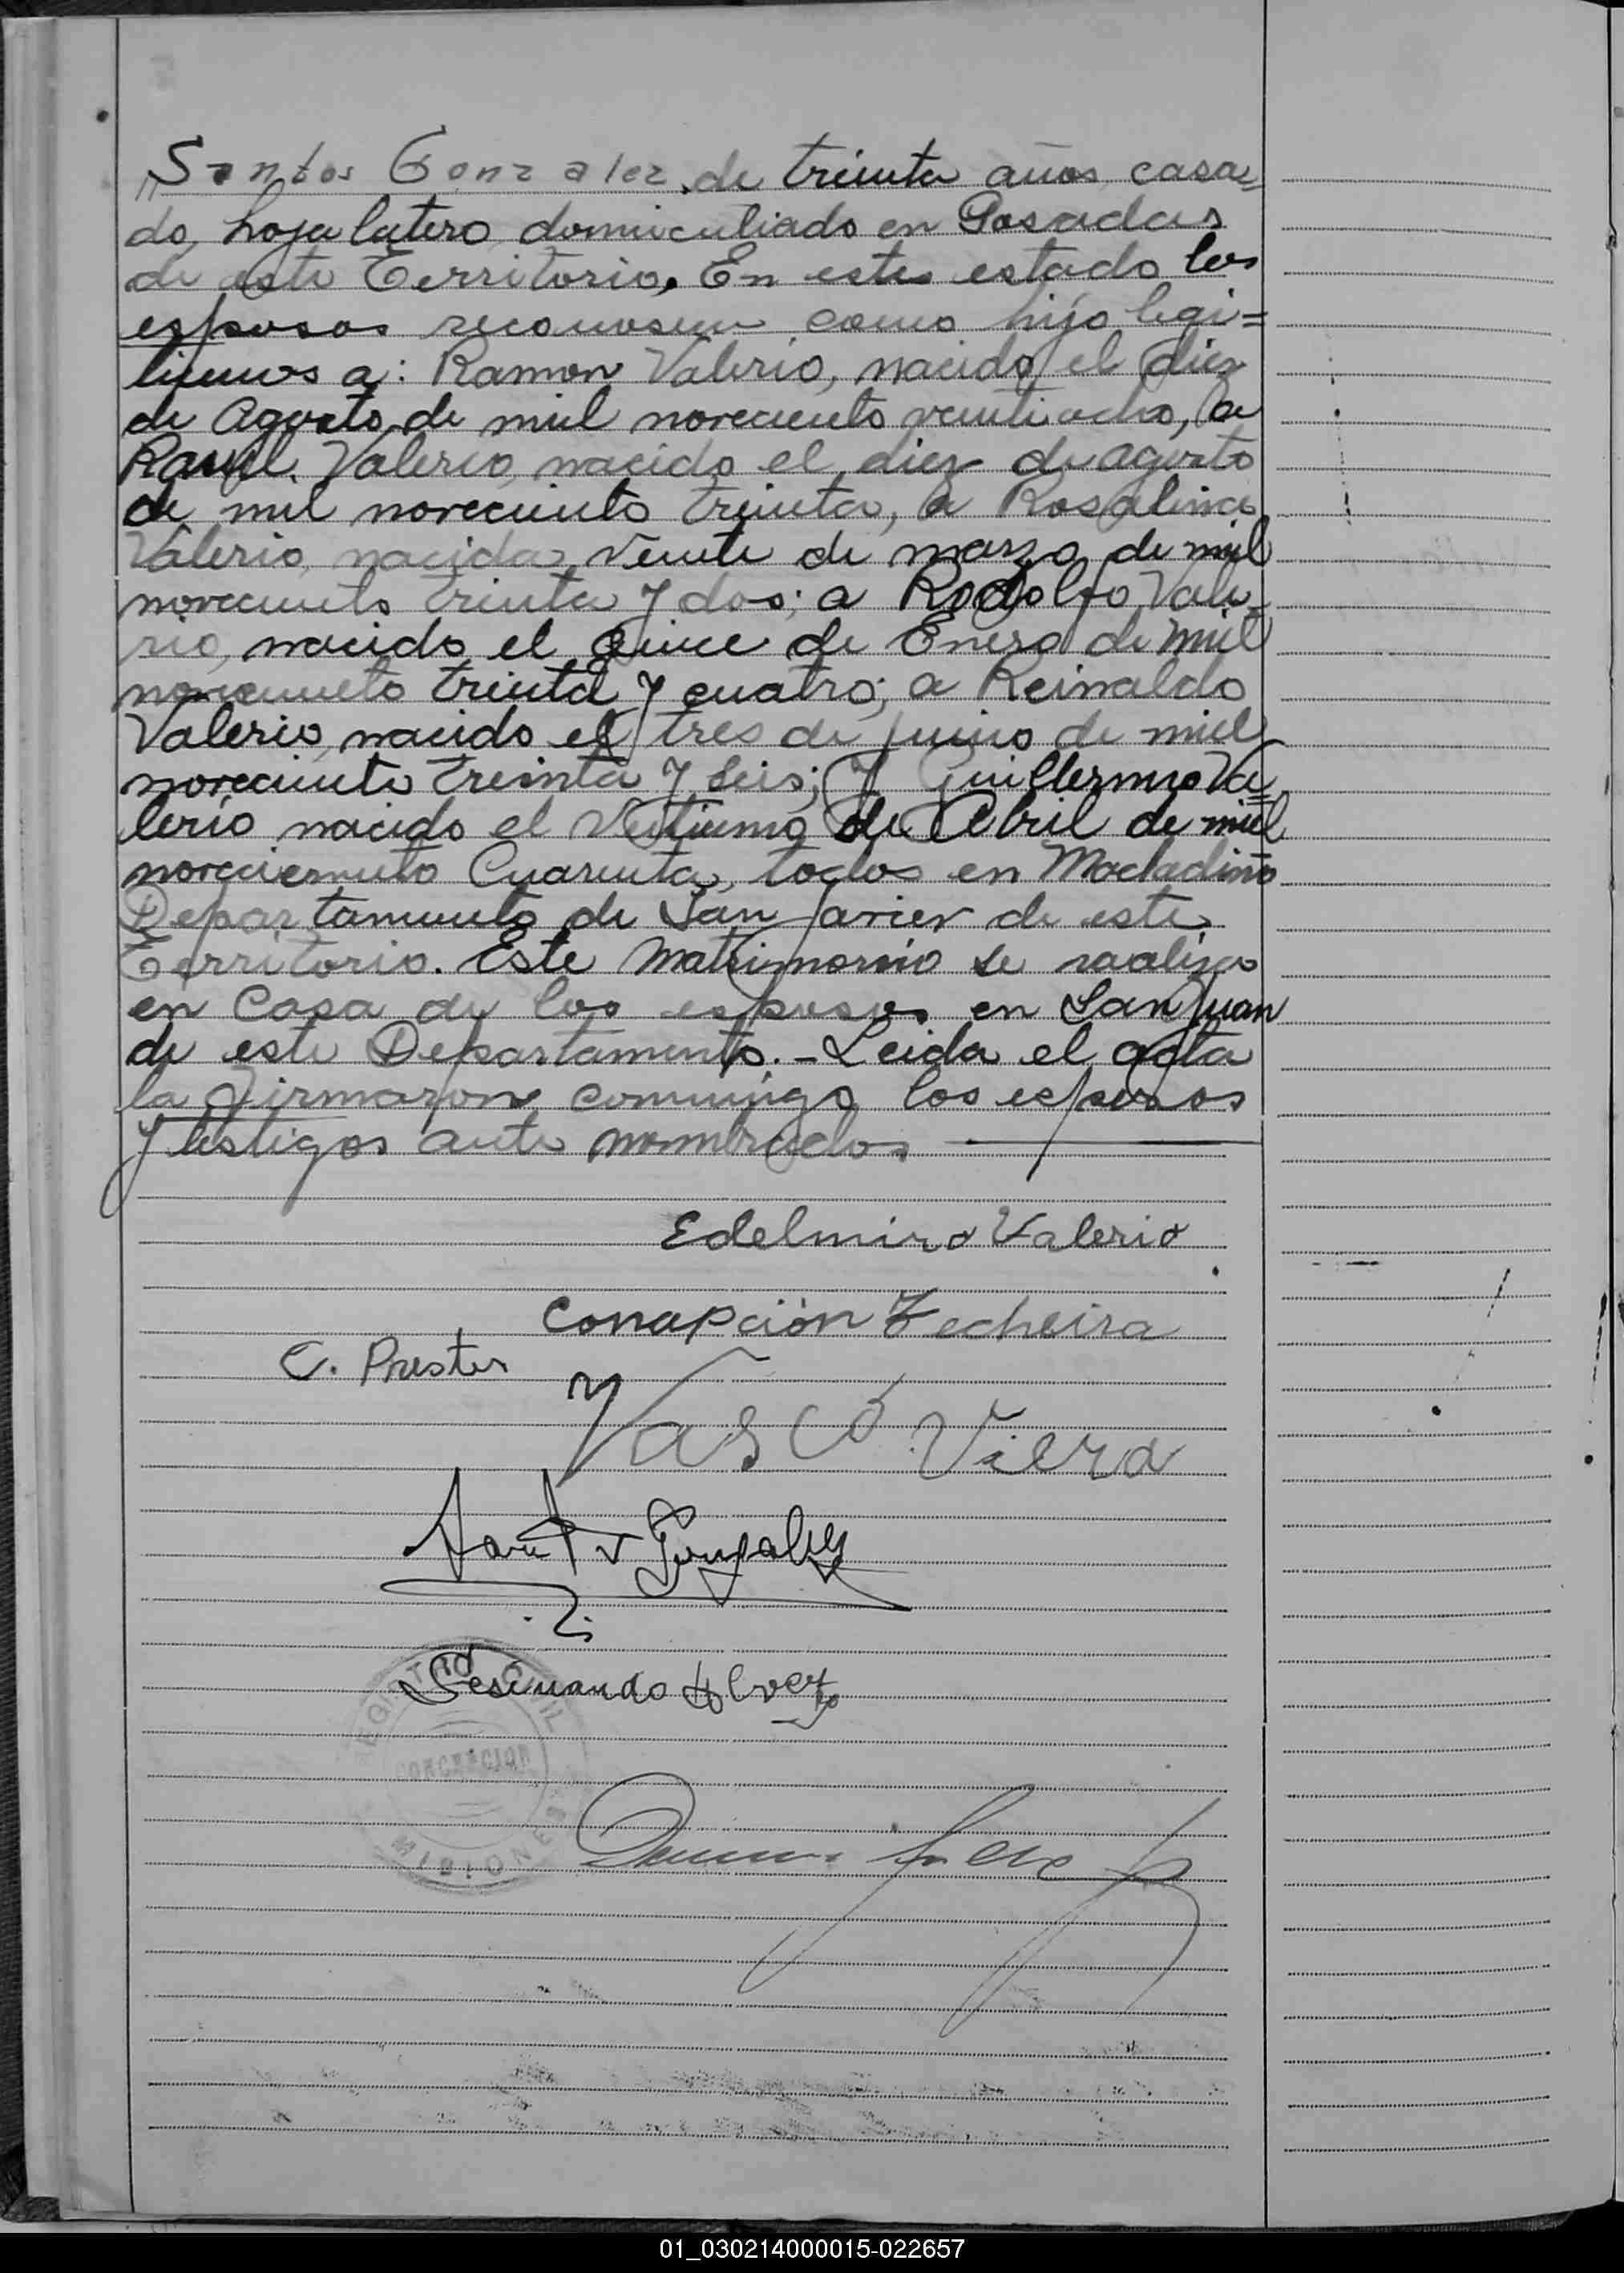 Santos Gonzalez, de treinta años, casa=
do, hojalatero, domiculiado en Posadas
de este Territorio. En estes estado los
esposos reconosen como hijo legi=
timos a: Ramon Valerio, nacido el diez
de Agosto de mil noveciento veintiocho, a
Raul Valerio, nacido el diez de agosto
de mil noveciento treinta, a Rosalina
Valerio, nacida veinte de marzo de mil
noveciento treinta y dos; a Rodolfo Vale=
rio, nacido el quice de Enero de mil
noveciento treinta y cuatro; a Reinaldo
Valerio, nacido el tres de junio de mil
noveciento treinta y seis; y Guillermo Va=
lerio nacido el de Abril de mil
noveciento Cuarenta, todos en Machadiño
Departamento de San Javier de este
Territorio. Este matrimonio se realiza
en Casa de los esposos en San Juan
de este Departamento. - Leida el acta
la firmaron conmigo los esposos
y testigos ante nombrados
Edelmiro Valerio
Conapción Techeira
C. Prestes
Vasco Viera
Santos Gonzalez
Alvez
REGISTRO CIVIL
CONCEPCION
MISIONES
01_030214000015-022657